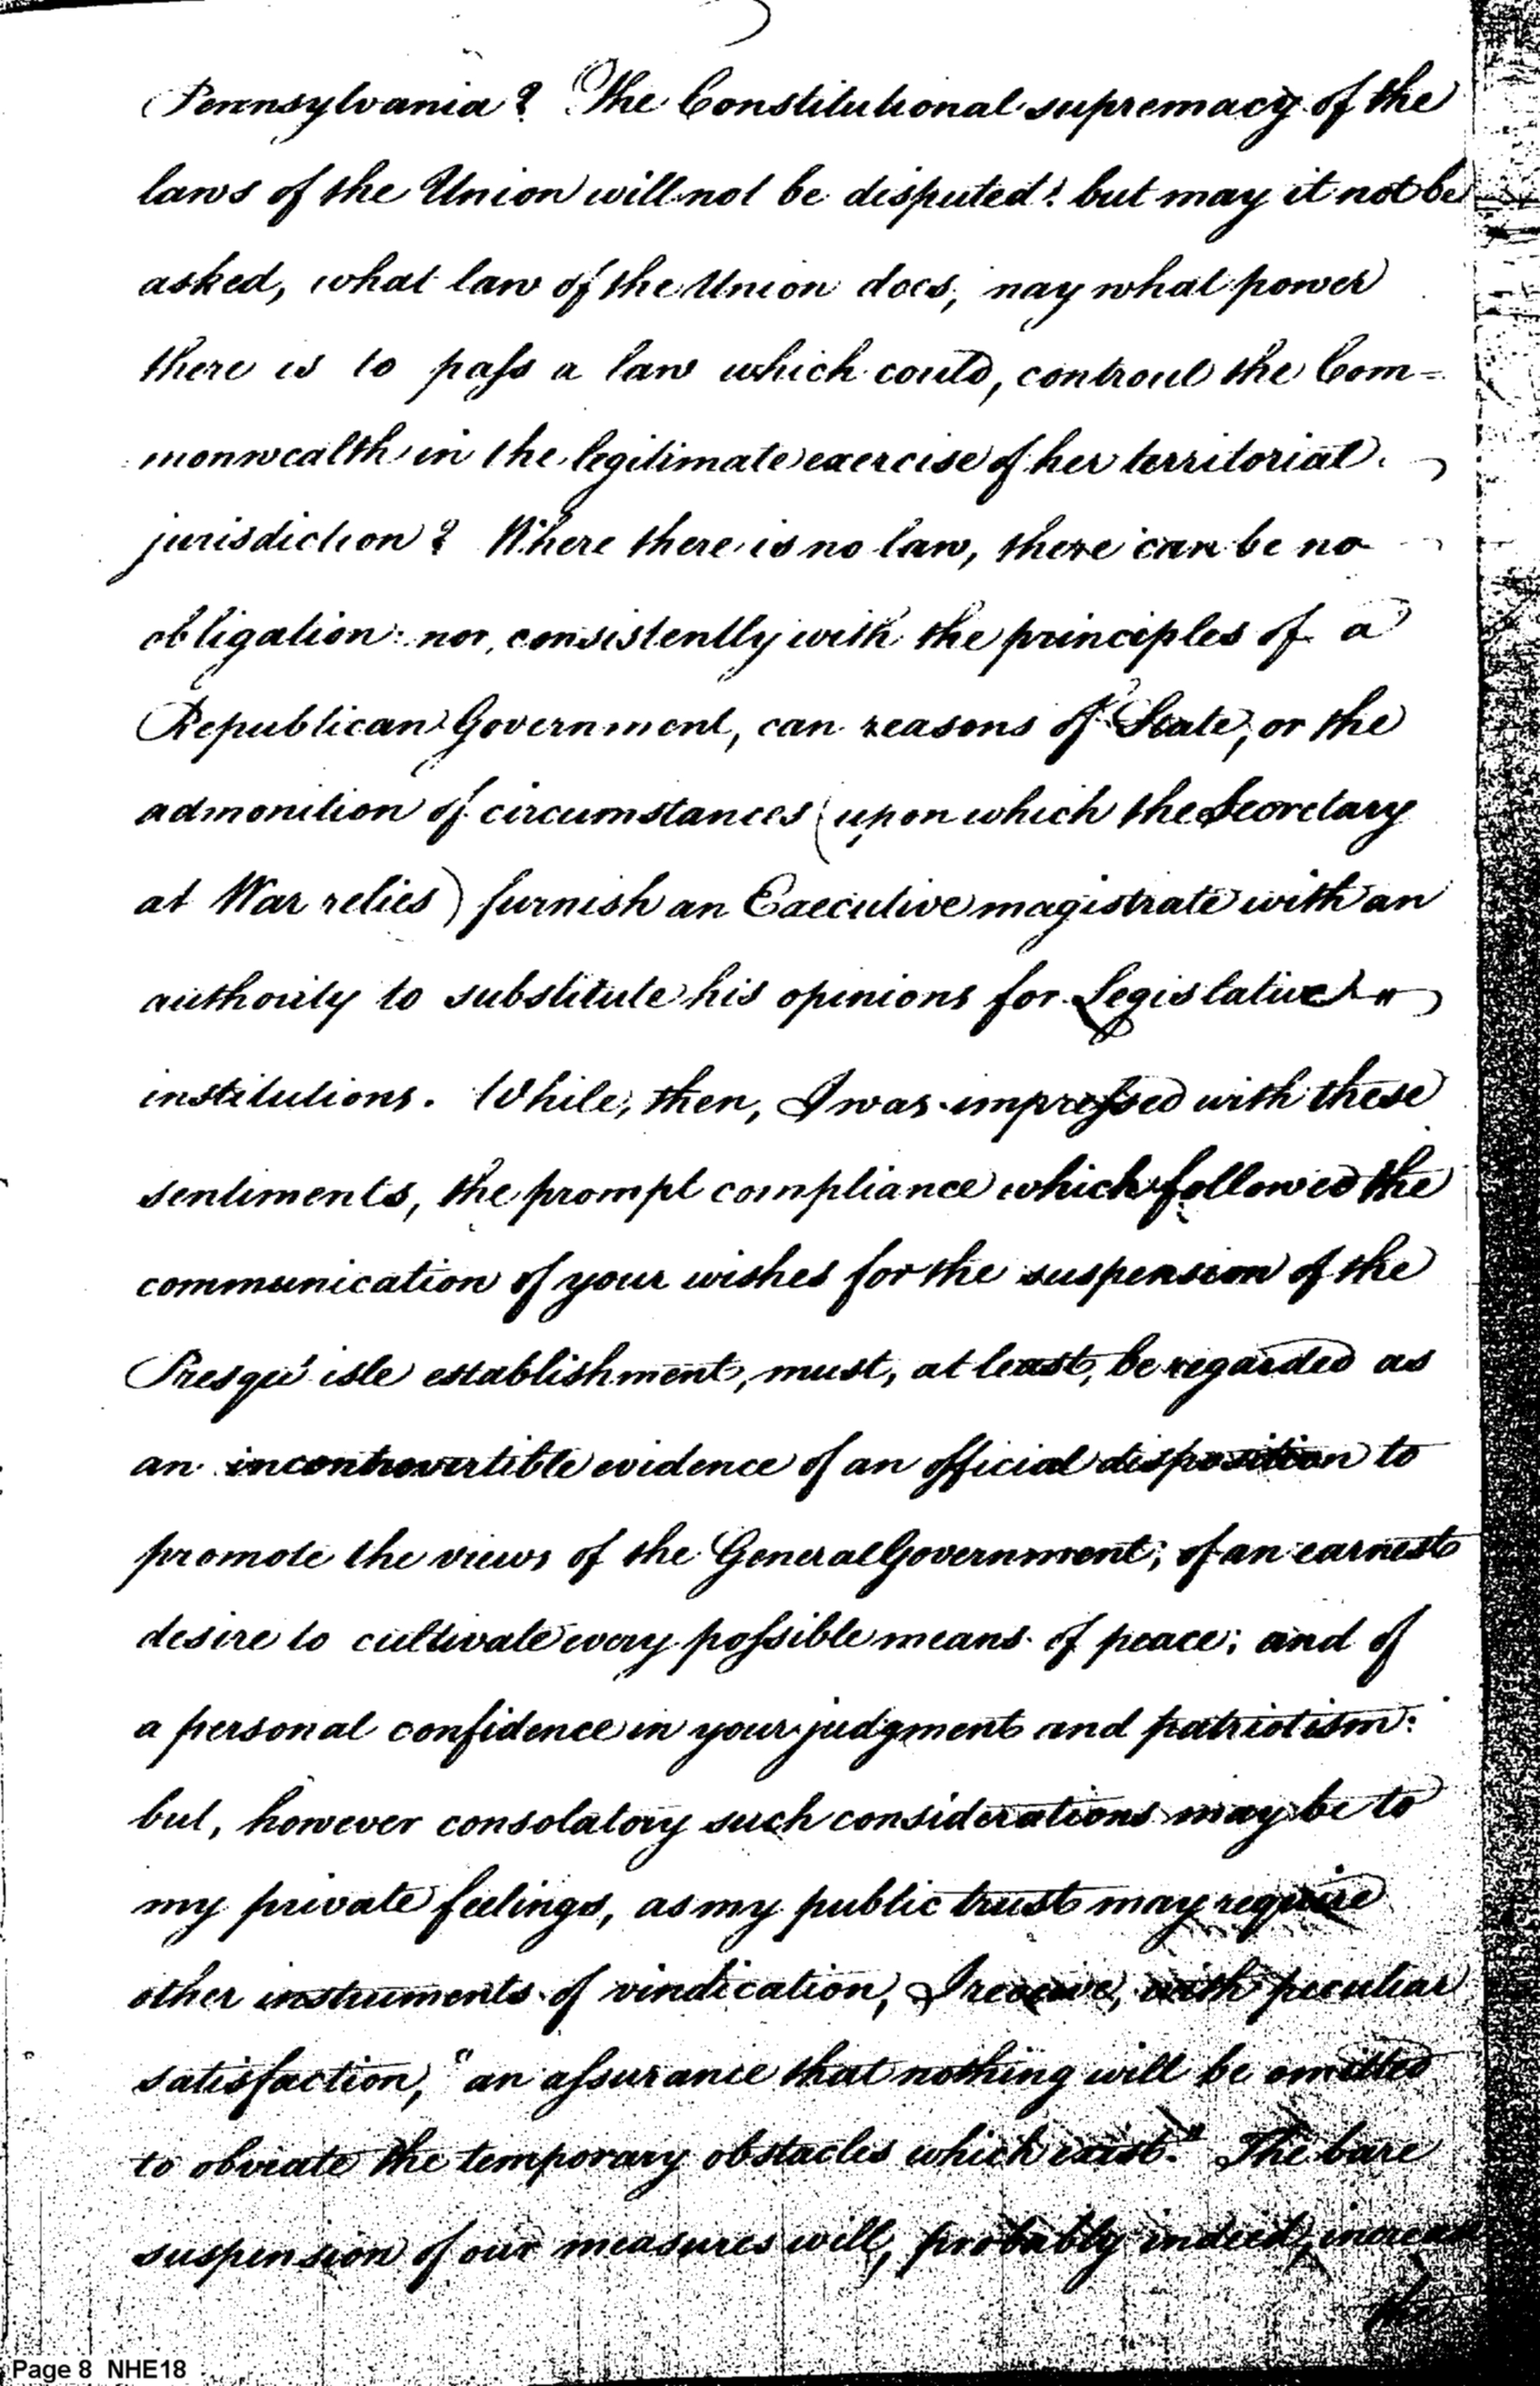 Pennsylvania? The Constitutional supremacy of the
laws of the Union will not be disputed: but may it not be
asked, what law of the Union does, nay what power
there is to pass a law which could, controul the Com=
monwealth in the legitimate exercise of her territorial
jurisdiction? Where there is no law, there can be no
obligation: nor, consistently with the principles of a
Republican Government, can reasons of State, or the
admonition of circumstances (upon which the Secretary
at War relies) furnish an Executive magistrate with an
authority to substitute his opinions for Legislative
institutions. While, then, I was impressed with these
sentiments, the prompt compliance which followed the
communication of your wishes for the suspension of the
Presqu' isle establishment, must, at least, be regarded as
an incontrovertible evidence of an official disposition to
promote the views of the General Government; of an earnest
desire to cultivate every possible means of peace; and of
a personal confidence in your judgment and patriotism:
but, however consolatory such considerations may be to
my private feelings, as my public trust may require
other instruments of vindication, I receive, with peculiar
satisfaction, "an assurance that nothing will be omitted
to obviate the temporary obstacles which exist." The bare
suspension of our measures will, probably indeed, increase
the
Page 8 NHE18